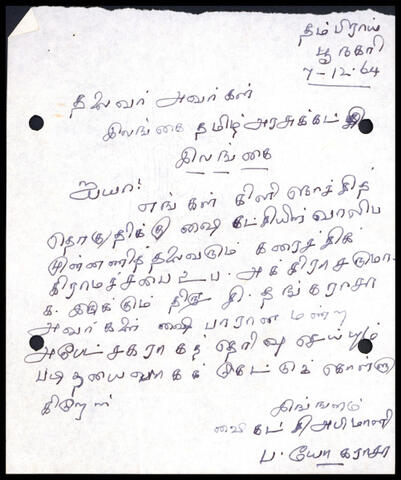 தம்பிராய்
பூநகரி
7-12.64
தலைவர் அவர்கள்
இலங்கை தமிழ் அரசுக்கட்சி
இலங்கை
ஐயா!
எங்கள் கிளிநொச்சித்
தொகுதிக்கு ஷை கட்சியின் வாலிப
முன்னணித்தலைவரும் கரைச்சிக்
கிராமச்சபை உப. அக்கிராசருமா
க. இருக்கும் திரு சி. தங்கராசா
அவர்கள் ஷை பாரான மன்ற
அபேட்சகராகத் தெரிவு செய்யும்
படி தயைவாகக் கேட்டுக் கொள்ளு
கிறேன்
இங்ஙனம்
ஷை கட்சி அபிமானி
ப. யோகராசா